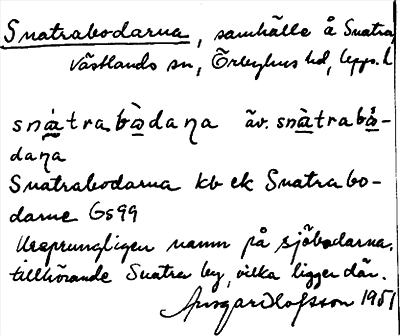 Snatrabodarna, samhälle å Snatra,
Västlands sn, Örbyhus hd, Upps. l.
snàtrabòdaṇa äv. snàtrabå̀-
daṇa
Snatrabodarna kb ek Snatrabo-
darne Gs99
Ursprungligen namn på sjöbodarna,
tillhörande Snatra by, vilka ligger där.
Ansgar Olofsson 1951